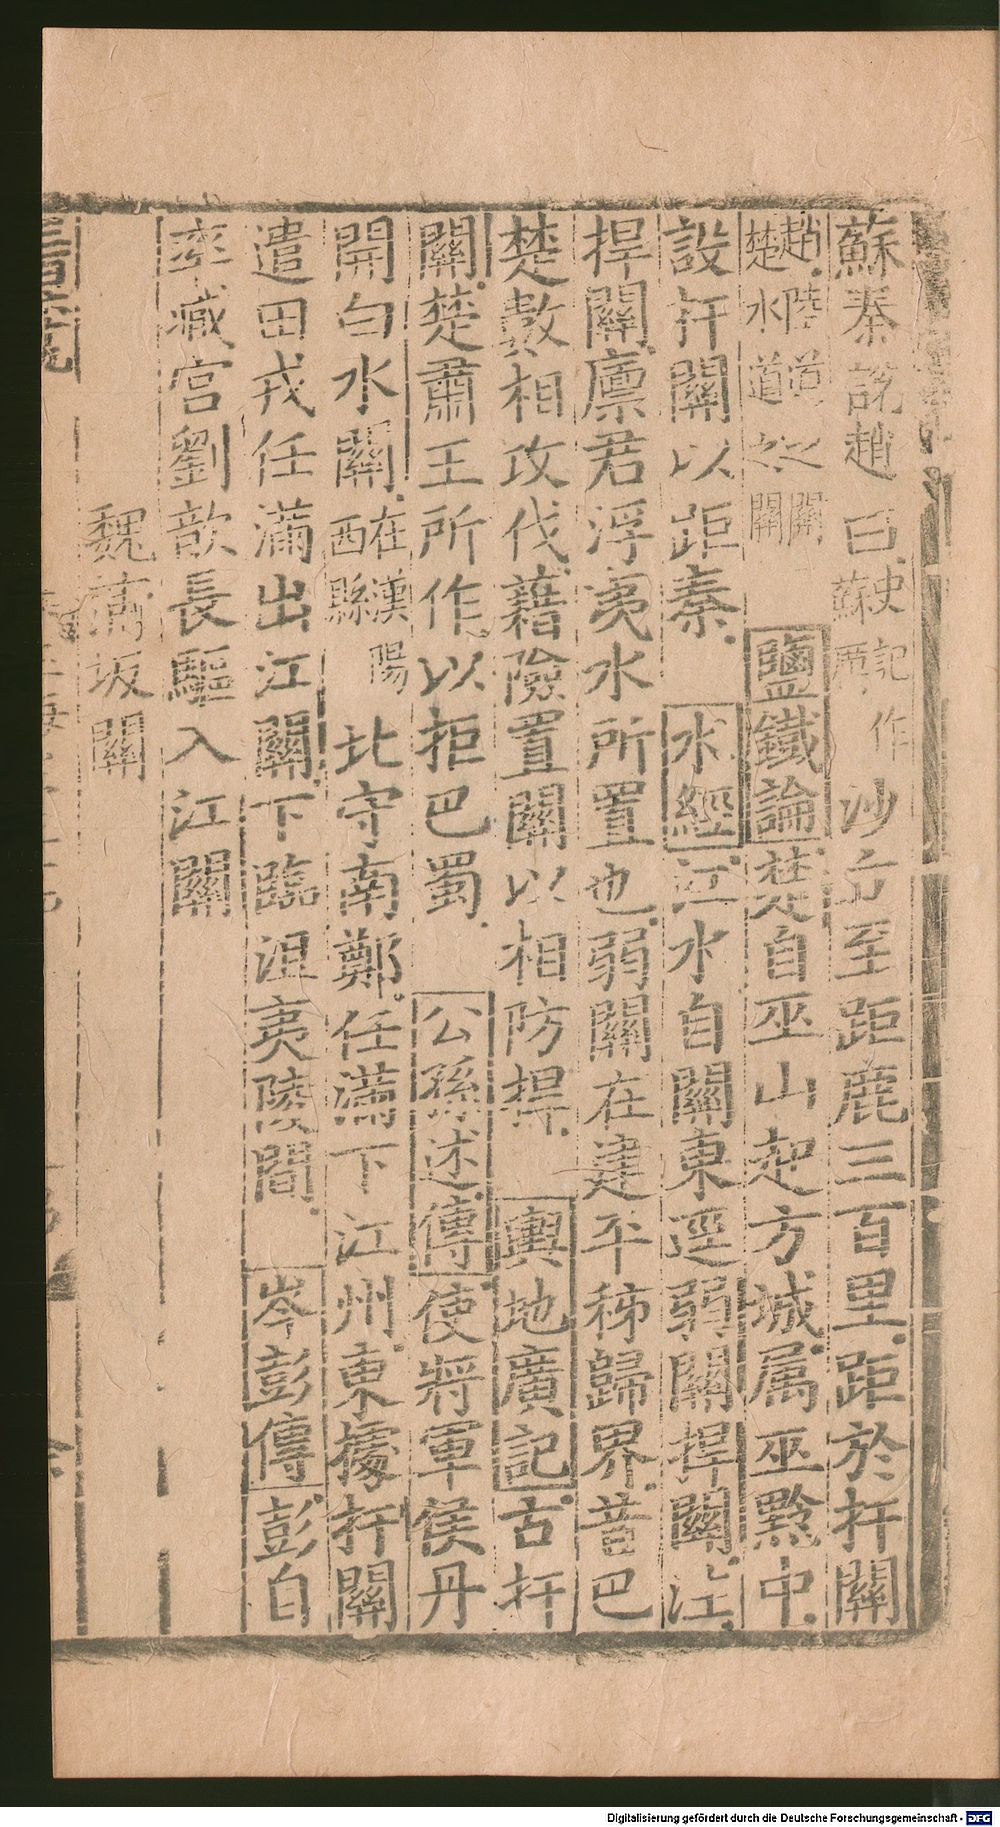 蘇秦說趙曰史記作蘇厲沙丘至距鹿三百里距於扞關
趙陸道之關楚水道之關鹽鐵論楚自巫山起方城屬巫黔中
設扞關以距秦水經江水自關東逕弱關捍關江
捍關廪君浮夷水所置也弱關在建平秭歸界昔巴
楚數相攻伐藉險置關以相防捍輿地廣記古扞
關楚肅王所作以拒巴蜀公孫述傳使將軍侯丹
開白水關在漢陽西縣北守南鄭任滿下江州東據扞關
遣田戎任滿出江關下臨沮夷陵間岑彭傳彭自
率臧宫劉歆長驅入江關
魏蒲坂關
Digitalisierung gefördert durch die Deutsche Forschungsgemeinschaft - DFG